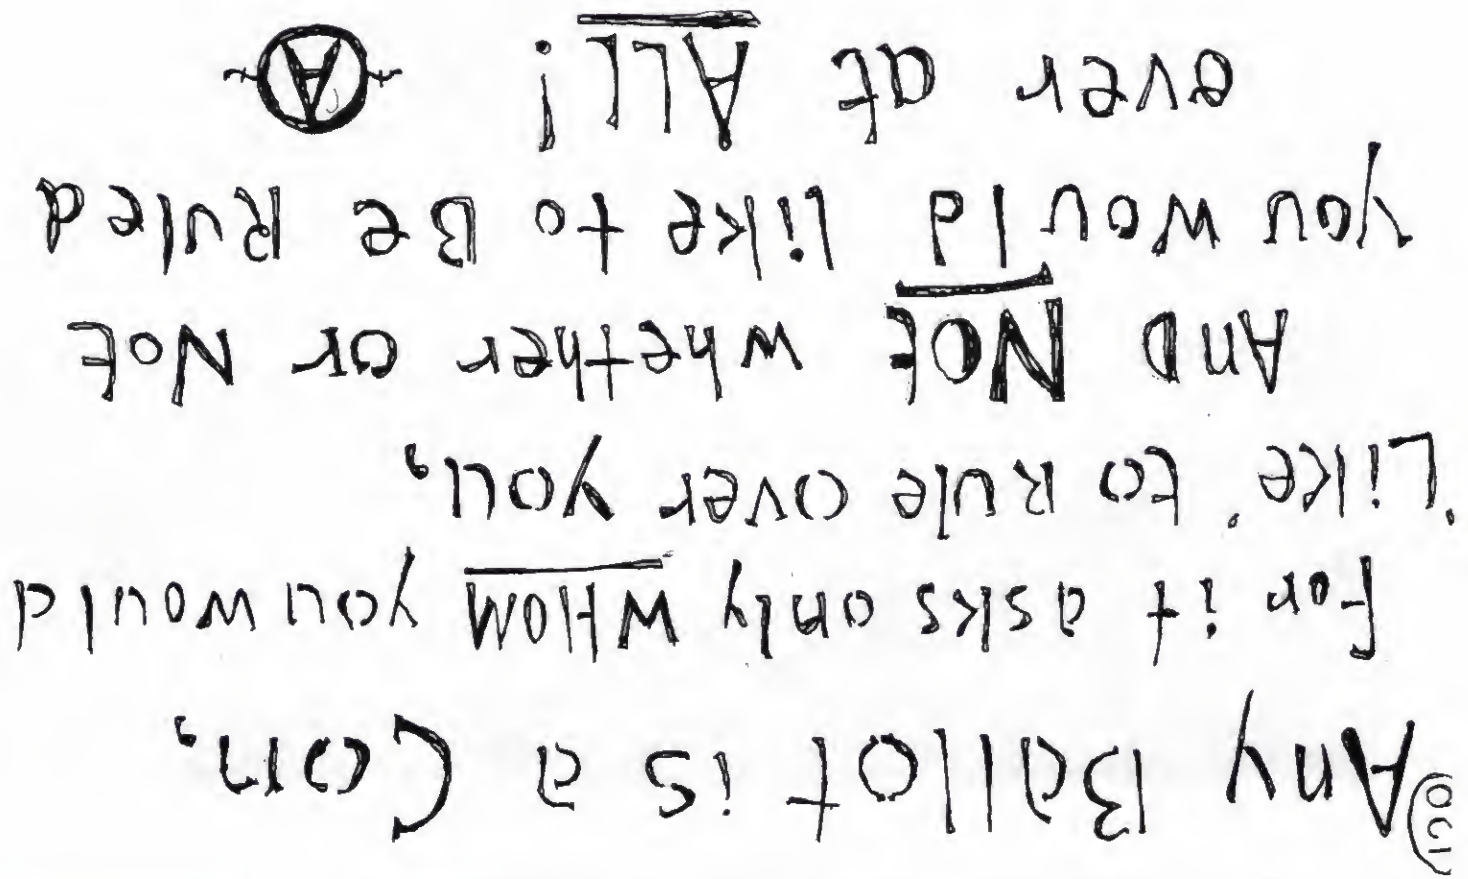 Any Ballot is a Con,
For it asks only WHOM you would
'Like' to Rule over you,
And NOt whether or Not
you would like to Be Ruled
ever at ALL! A